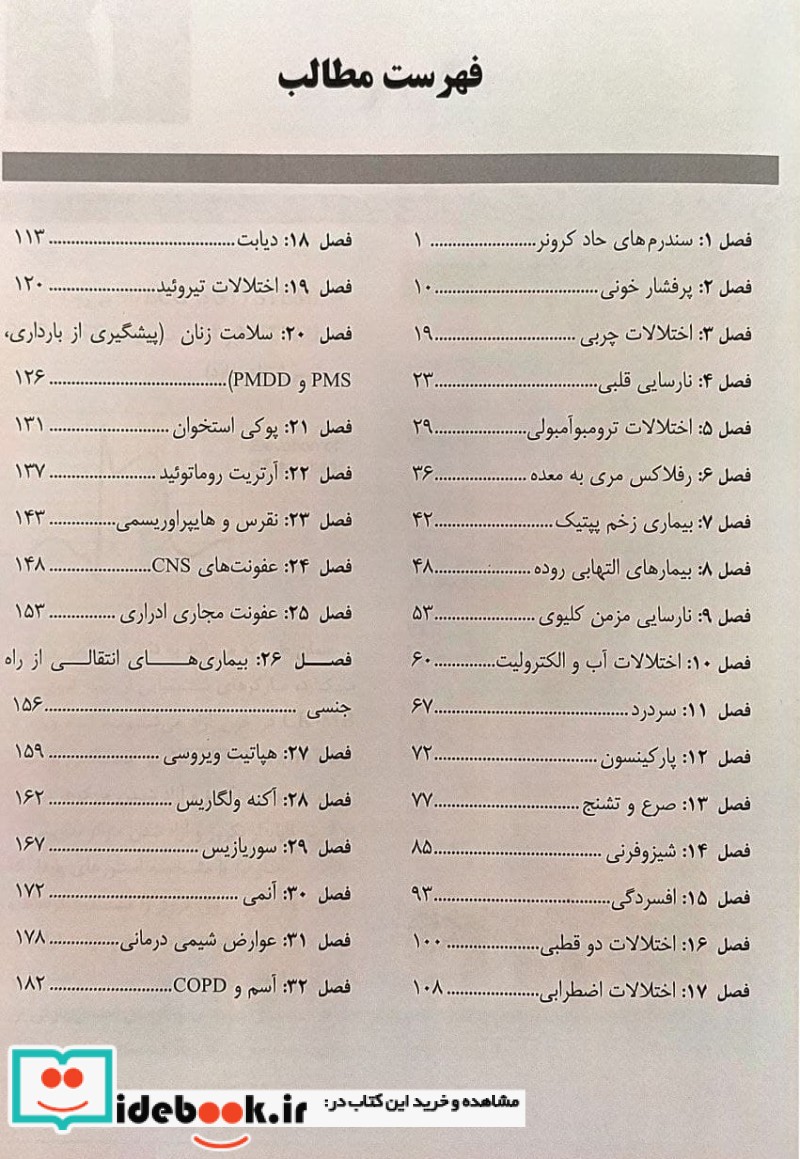 فهرست مطالب
فصل ۱: سندرم‌های حاد کرونر........................ ۱
فصل ۲: پرفشار خونی.....................................۱۰
فصل ۳: اختلالات چربی ................................۱۹
فصل ۴: نارسایی قلبی.....................................۲۳
فصل ۵: اختلالات ترومبوآمبولی.....................۲۹
فصل ۶: رفلاکس مری به معده .....................۳۶
فصل ۷: بیماری زخم پپتیک...........................۴۲
فصل ۸: بیمارهای التهابی روده ......................۴۸
فصل ۹: نارسایی مزمن کلیوی .......................۵۳
فصل ۱۰: اختلالات آب و الکترولیت..............۶۰
فصل ۱۱: سردرد ............................................۶۷
فصل ۱۲: پارکینسون .....................................۷۲
فصل ۱۳: صرع و تشنج .................................۷۷
فصل ۱۴: شیزوفرنی ......................................۸۵
فصل ۱۵: افسردگی........................................۹۳
فصل ۱۶: اختلالات دو قطبی .....................۱۰۰
فصل ۱۷: اختلالات اضطرابی.....................۱۰۸
فصل ۱۸: دیابت..........................................۱۱۳
فصل ۱۹: اختلالات تیروئید........................۱۲۰
فصل ۲۰: سلامت زنان (پیشگیری از بارداری،
PMS و PMDD)........................................۱۲۶
فصل ۲۱: پوکی استخوان ...........................۱۳۱
فصل ۲۲: آرتریت روماتوئید ........................۱۳۷
فصل ۲۳: نقرس و هایپراوریسمی...............۱۴۳
فصل ۲۴: عفونت‌های CNS.......................۱۴۸
فصل ۲۵: عفونت مجاری ادراری ...............۱۵۳
فصـــل ۲۶: بیماری‌هـــــای انتقالـــی از راه
جنسی .........................................................۱۵۶
فصل ۲۷: هپاتیت ویروسی .........................۱۵۹
فصل ۲۸: آکنه ولگاریس ............................۱۶۲
فصل ۲۹: سوریازیس ..................................۱۶۷
فصل ۳۰: آنمی ...........................................۱۷۲
فصل ۳۱: عوارض شیمی درمانی................۱۷۸
فصل ۳۲: آسم و COPD............................۱۸۲
مشاهده و خرید این کتاب در:
idebook.ir